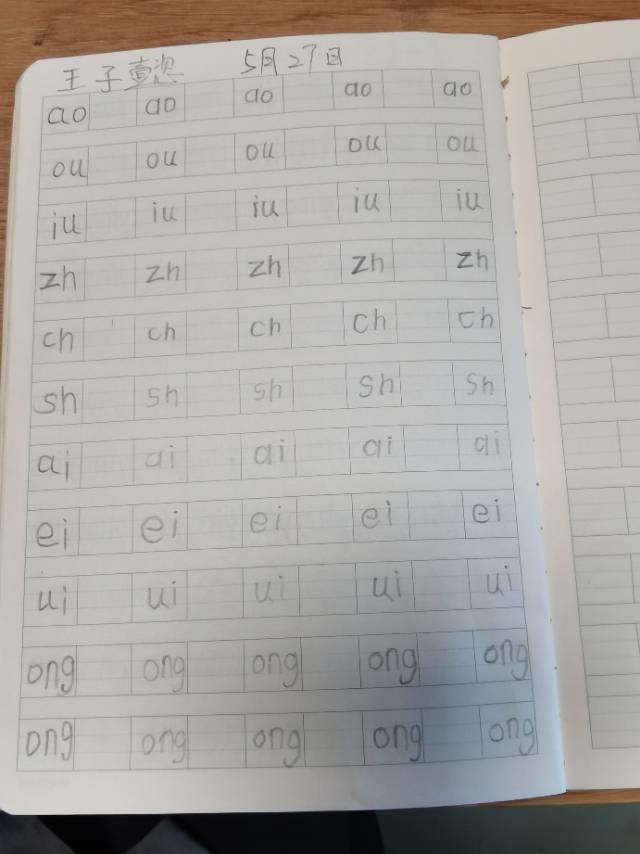 王子壹 5月27日
ao ao ao ao ao
ou ou ou ou ou
iu iu iu iu iu
zh zh zh zh zh
ch ch ch ch ch
sh sh sh sh sh
ai ai ai ai ai
ei ei ei ei ei
ui ui ui ui ui
ong ong ong ong ong
ong ong ong ong ong